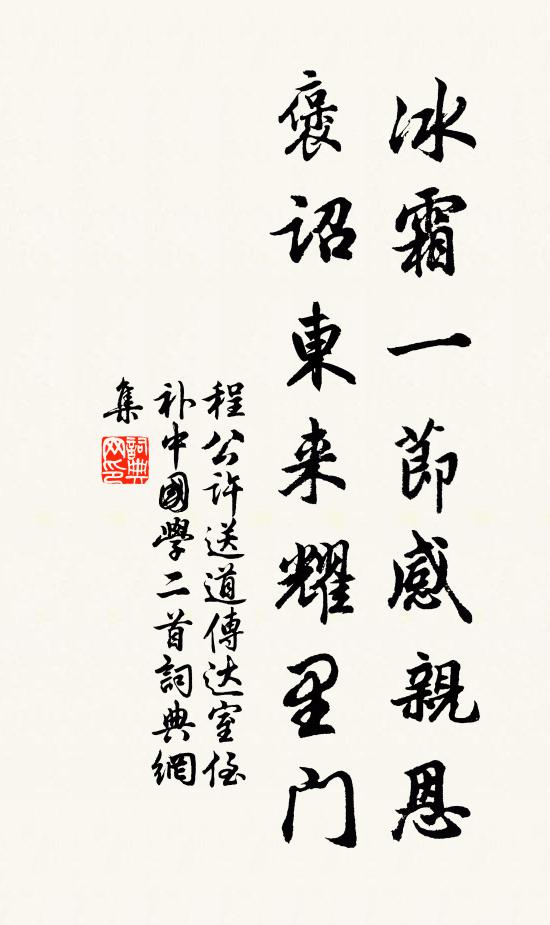 冰霜一節感親恩
褒詔東来耀里门
程公许送道傳达室侄
补中國學二首詞典網
集
詞典網印